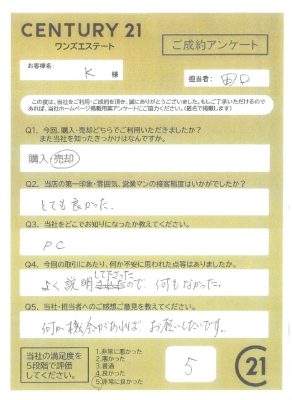 CENTURY 21
ワンズエステート
ご成約アンケート
お客様名:
K 様
担当者: 田口
この度は、当社をご利用・ご成約を頂き、誠にありがとうございました。もしご了承いただけるので
あれば、当社ホームページ掲載用アンケートにご協力ください。(匿名で掲載します)
Q1、今回、購入・売却どちらでご利用いただきましたか?
また当社を知ったきっかけはなんですか。
購入・売却
Q2、当店の第一印象・雰囲気、営業マンの接客態度はいかがでしたか?
とても良かった。
Q3、当社をどこでお知りになったか教えてください。
PC
Q4、今回の取引にあたり、何か不安に思われた点等はありましたか。
よく説明して下さったので 何もなかった。
Q5、当社・担当者へのご感想ご意見を教えてください。
何か機会があれば お願いしたいです。
当社の満足度を
5段階で評価
してください。
1.非常に悪かった
2.悪かった
3.普通
4.良かった
5.非常に良かった
5
C21